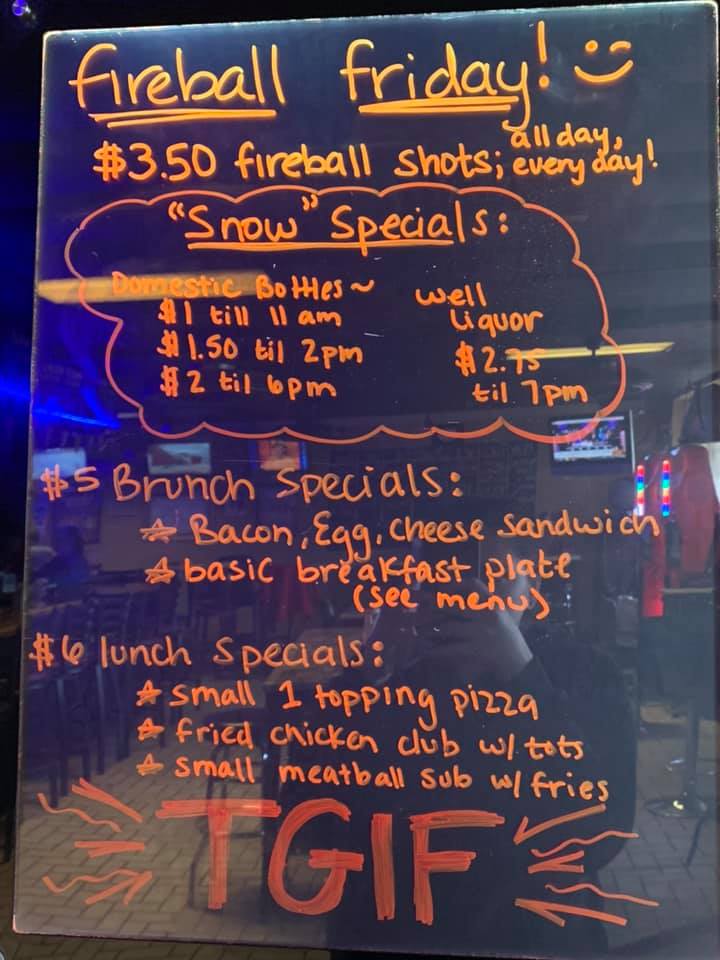 fireball friday!
$3.50 fireball shots; all day, every day!
"Snow" Specials:
Domestic Bottles~
$1 till 11 am
$1.50 til 2pm
$2 til 6pm
well
Liquor
$2.75
til 7pm
$5 Brunch Specials:
☆ Bacon, Egg, Cheese Sandwich
☆ basic breakfast plate
(see menu)
$6 lunch specials:
☆ small 1 topping pizza
☆ fried chicken club w/ tots
☆ small meatball sub w/ fries
TGIF